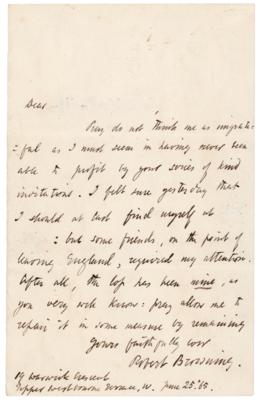 Dear
Pray do not think me as ungrate-
:ful as I must seem in having never been
able to profit by your series of kind
invitations. I felt sure yesterday that
I should at last find myself at
: but some friends, on the point of
leaving England, required my attention.
After all, the loss has been mine, as
you very well know: pray allow me to
repair it in some measure by remaining
Yours faithfully ever
Robert Browning.
19 Warwick Crescent
Upper Westbourne Terrace, W. June 25. '65.